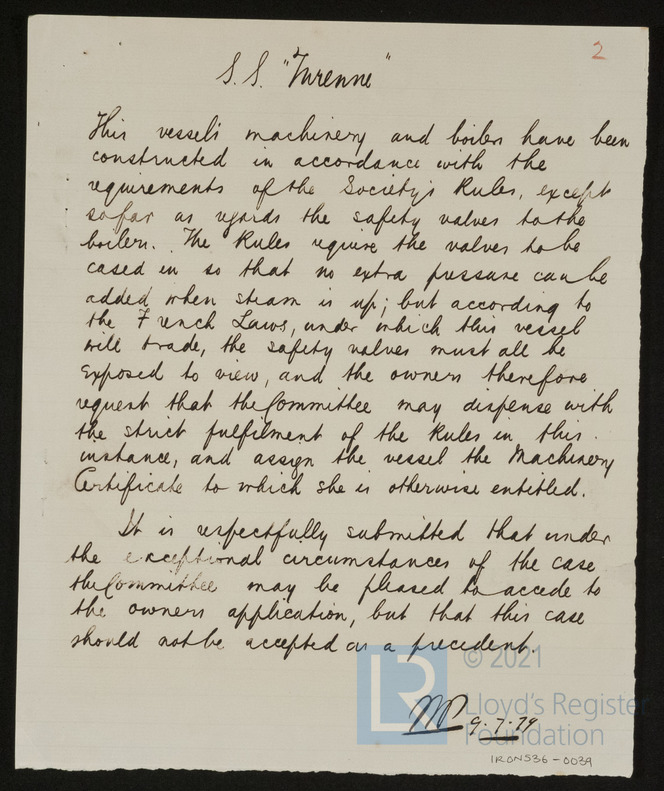 2
S.S. "Turenne"
This vessel's machinery and boilers have been
constructed in accordance with the
requirements of the Society's Rules, except
so far as regards the safety valves to the
boilers. The Rules require the valves to be
cased in so that no extra pressure can be
added when steam is up; but according to
the French Laws, under which this vessel
will trade, the safety valves must all be
exposed to view, and the owners therefore
request that the Committee may dispense with
the strict fulfilment of the Rules in this
instance, and assign the vessel the Machinery
Certificate to which she is otherwise entitled.
It is respectfully submitted that under
the exceptional circumstances of the case
the Committee may be pleased to accede to
the owners application, but that this case
should not be accepted as a precedent.
9.7.79
© 2021
LR
Lloyd's Register
Foundation
IRON536-0039